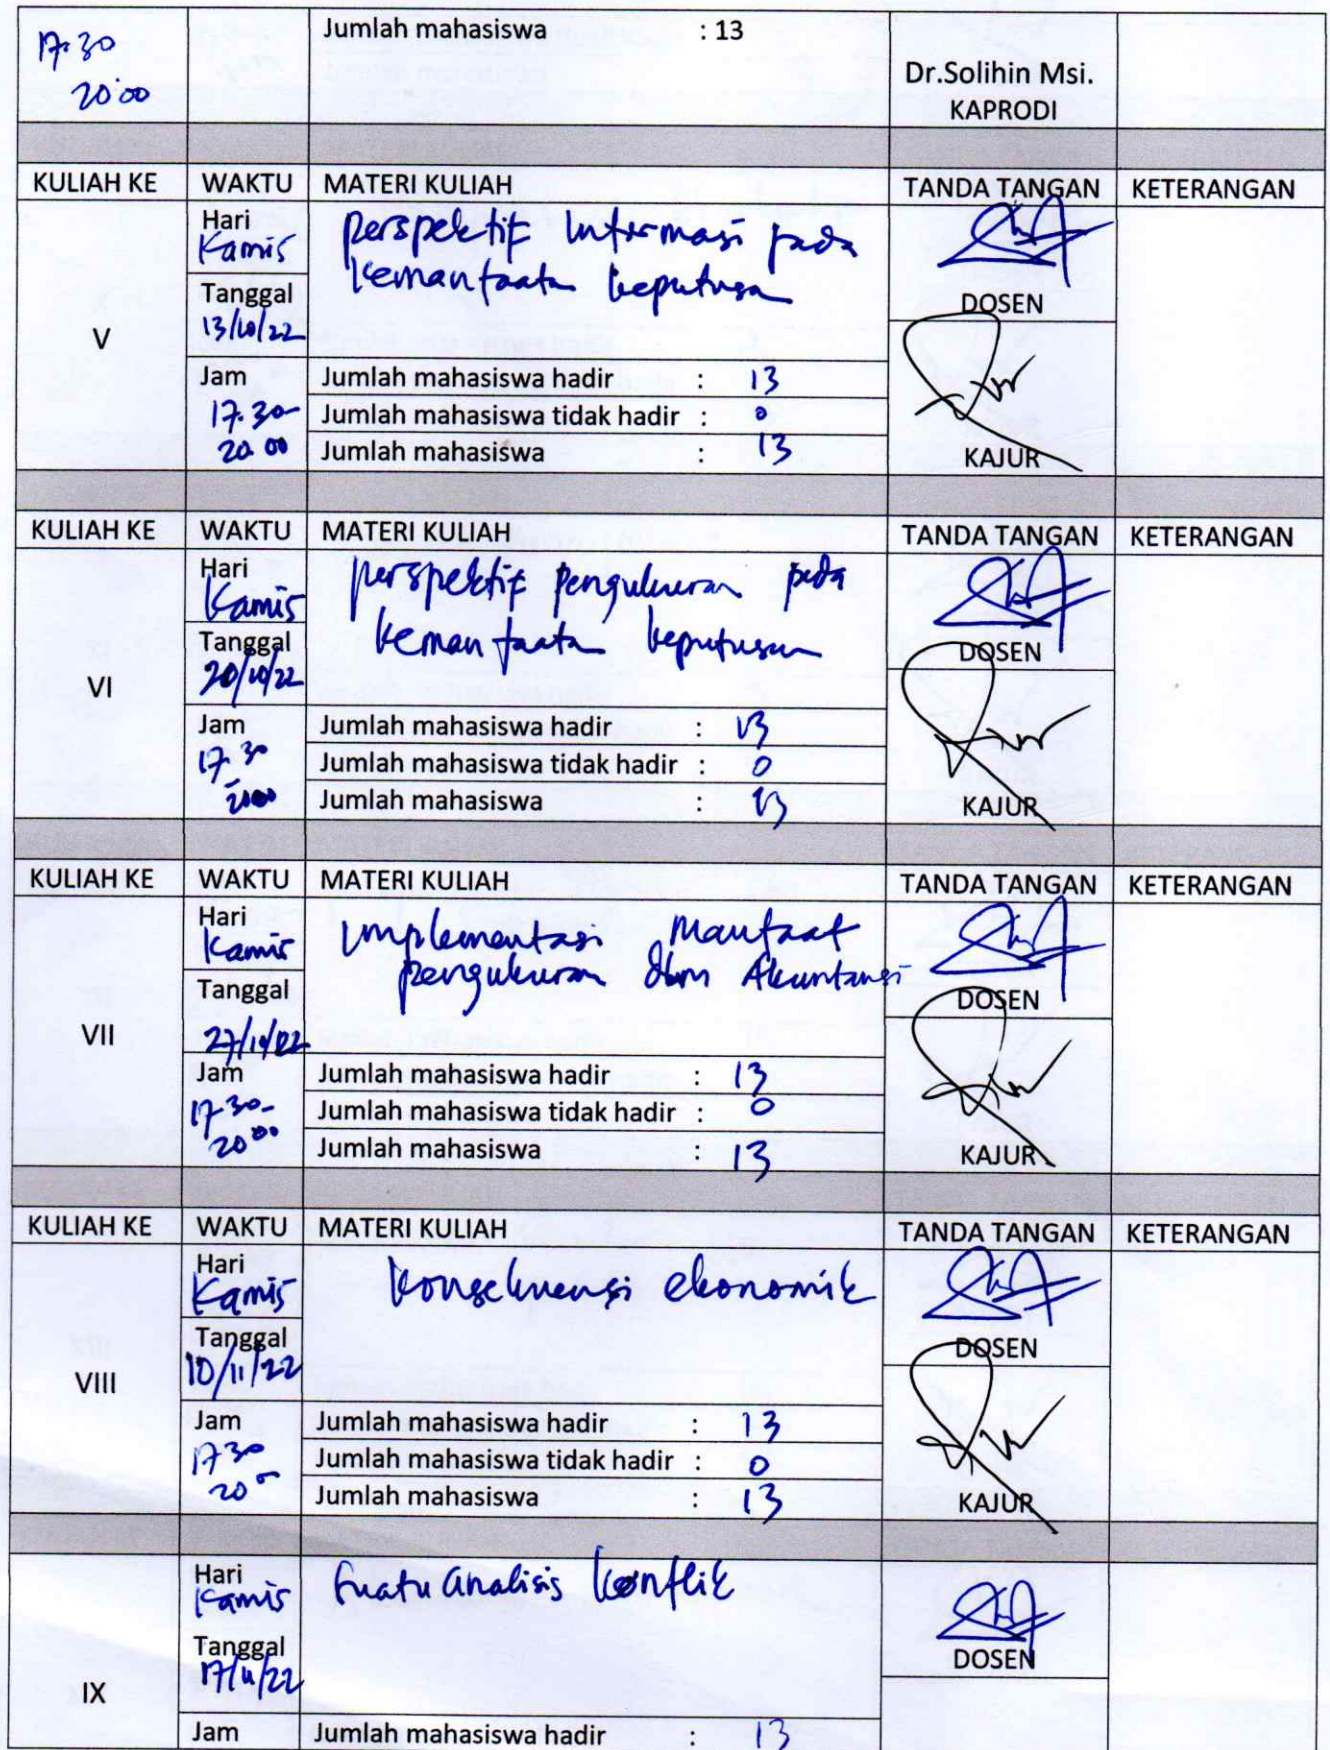 17.30
20.00
Jumlah mahasiswa : 13
Dr.Solihin Msi.
KAPRODI
KULIAH KE WAKTU MATERI KULIAH TANDA TANGAN KETERANGAN
V
Hari
Kamis
Tanggal
13/10/22
Jam
17.30-
20.00
perspektif informasi pada
kemanfaata keputusan
Jumlah mahasiswa hadir : 13
Jumlah mahasiswa tidak hadir : 0
Jumlah mahasiswa : 13
DOSEN
KAJUR
KULIAH KE WAKTU MATERI KULIAH TANDA TANGAN KETERANGAN
VI
Hari
Kamis
Tanggal
20/10/22
Jam
17.30
-2000
perspektif pengukuran pada
kemanfaata keputusan
Jumlah mahasiswa hadir : 13
Jumlah mahasiswa tidak hadir : 0
Jumlah mahasiswa : 13
DOSEN
KAJUR
KULIAH KE WAKTU MATERI KULIAH TANDA TANGAN KETERANGAN
VII
Hari
Kamis
Tanggal
27/10/22
Jam
17.30-
2000
Implementasi Manfaat
pengukuran dlm Akuntansi
Jumlah mahasiswa hadir : 13
Jumlah mahasiswa tidak hadir : 0
Jumlah mahasiswa : 13
DOSEN
KAJUR
KULIAH KE WAKTU MATERI KULIAH TANDA TANGAN KETERANGAN
VIII
Hari
Kamis
Tanggal
10/11/22
Jam
1730
2000
konsekuensi ekonomik
Jumlah mahasiswa hadir : 13
Jumlah mahasiswa tidak hadir : 0
Jumlah mahasiswa : 13
DOSEN
KAJUR
IX
Hari
Kamis
Tanggal
17/11/22
Jam
Suatu analisis konflik
Jumlah mahasiswa hadir : 13
DOSEN